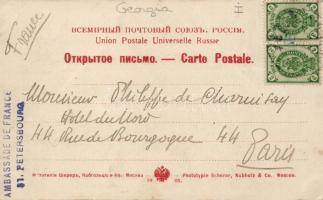 Georgia
France
ВСЕМІРНЫЙ ПОЧТОВЫЙ СОЮЗЪ. РОССІЯ.
Union Postale Universelle Russie
Открытое письмо. — Carte Postale.
Monsieur Philippe de
Hotel du Nord
44 Rue de Bourgogne 44
Paris
AMBASSADE DE FRANCE
ST. PETERSBOURG
Фототипія Шереръ, Набгольцъ и Ко. Москва
Phototypie Scherer, Nabholz & Co. Moscou.